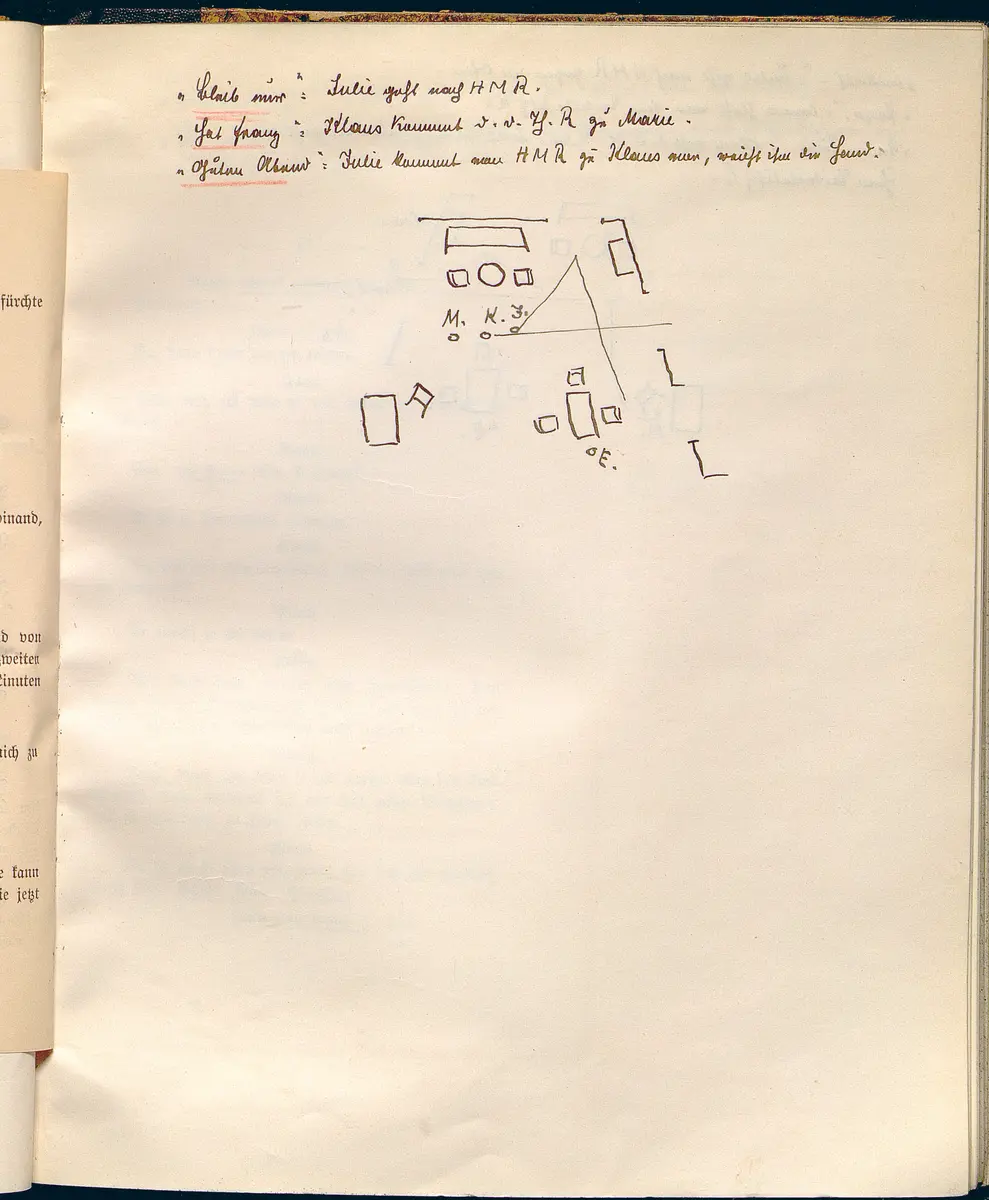 „Bleib nur": Julie geht nach H M R.
„Hat Franz": Klaus kommt d. d. Th. R zu Marie.
„Guten Abend": Julie kommt von H M R zu Klaus vor, reicht ihm die Hand.
M. K. J.
E.
fürchte
inand,
d von
zweiten
Minuten
mich zu
e kann
ie jetzt